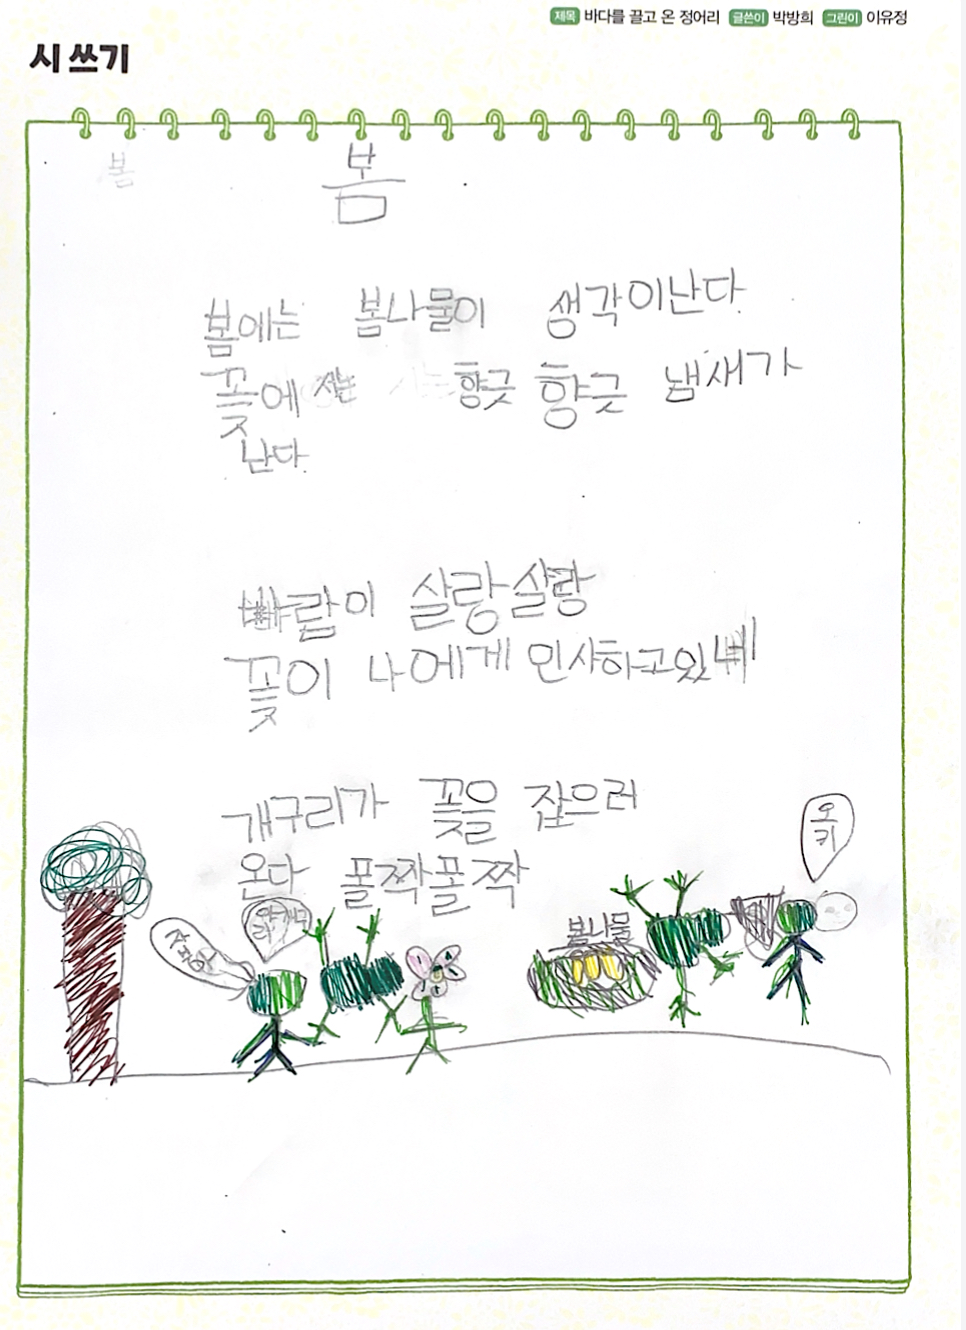 제목 바다를 끌고 온 정어리 글쓴이 박방희 그린이 이유정
시 쓰기
봄
봄
봄에는 봄나물이 생각이난다
꽃에서는 향긋 향긋 냄새가
난다
빠람이 살랑살랑
꽃이 나에게 인사하고있네
개구리가 꽃을 잡으러
온다 폴짝폴짝
오키
봄나물